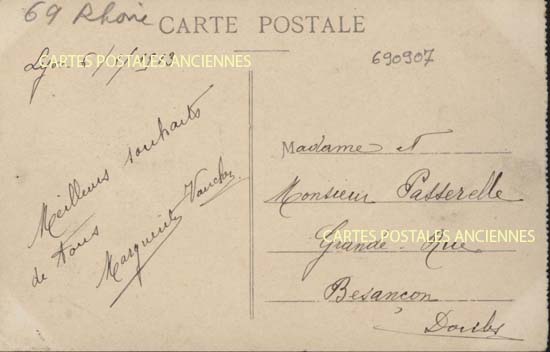 69 Rhône
CARTE POSTALE
CARTES POSTALES ANCIENNES
Lyon
690907
Meilleurs souhaits
de tous
Marguerite
Madame et
Monsieur Passerelle
CARTES POSTALES ANCIENNES
Grande-Rue
Besançon
Doubs